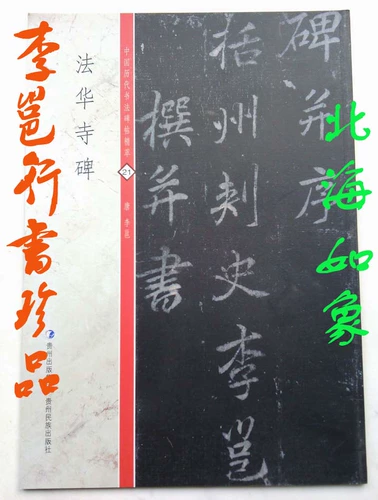 李邕行书珍品
法华寺碑
中国历代书法碑帖精萃
21
唐 李邕
贵州出版
贵州民族出版社
碑并序
括州刺史李邕
撰并书
北海如象